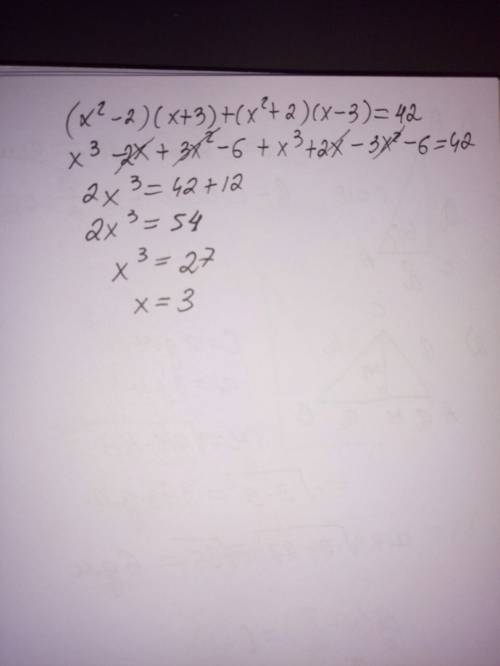 (x² - 2)(x + 3) + (x² + 2)(x - 3) = 42
x³ - 2x + 3x² - 6 + x³ + 2x - 3x² - 6 = 42
2x³ = 42 + 12
2x³ = 54
x³ = 27
x = 3